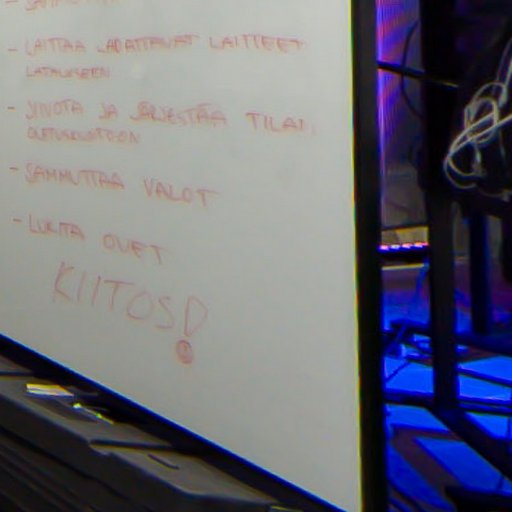 - LAITTAA LADATTAVAT LAITTEET
LATAUKSEEN
- SIIVOTA JA JÄRJESTÄÄ TILAT
OLETUSKUNTOON
- SAMMUTTAA VALOT
- LUKITA OVET
KIITOS!